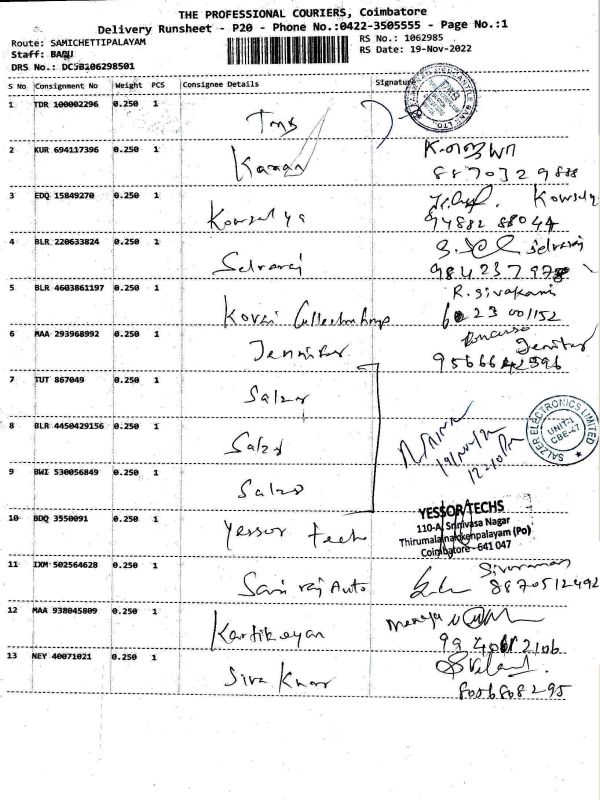 THE PROFESSIONAL COURIERS, Coimbatore
Delivery Runsheet - P20 - Phone No.:0422-3505555 - Page No.:1
Route: SAMICHETTIPALAYAM
RS No.: 1062985
Staff: BABU
RS Date: 19-Nov-2022
DRS No.: DC5B106298501
S No Consignment No Weight PCS Consignee Details Signature
1 TDR 100002296 0.250 1 Tmb
2 KUR 694117396 0.250 1 Kannan
88703 29888
3 EDQ 15849270 0.250 1 Kowsalya Kowsalya
94882 88044
4 BLR 220633824 0.250 1 Selvaraj Selvaraj
984237
5 BLR 4603861197 0.250 1 Kovai R. Sivakami
6 MAA 293968992 0.250 1 Jennifer Jenifer
9566642596
7 TUT 867049 0.250 1 Salzer
8 BLR 4450429156 0.250 1 Salzer
SALZER ELECTRONICS LIMITED
UNIT-I
CBE-47
9 BWI 530056849 0.250 1 Salzer
10 BDQ 3550091 0.250 1 Yessor Tech
YESSOR TECHS
110-A, Srinivasa Nagar
Thirumalainaickenpalayam (Po)
Coimbatore - 641 047
11 IXM 502564628 0.250 1 Sai raj Auto Sivaraman
8870512492
12 MAA 938045809 0.250 1 Kartikeyan
13 NEY 40071021 0.250 1 Siva Kumar
8056808295